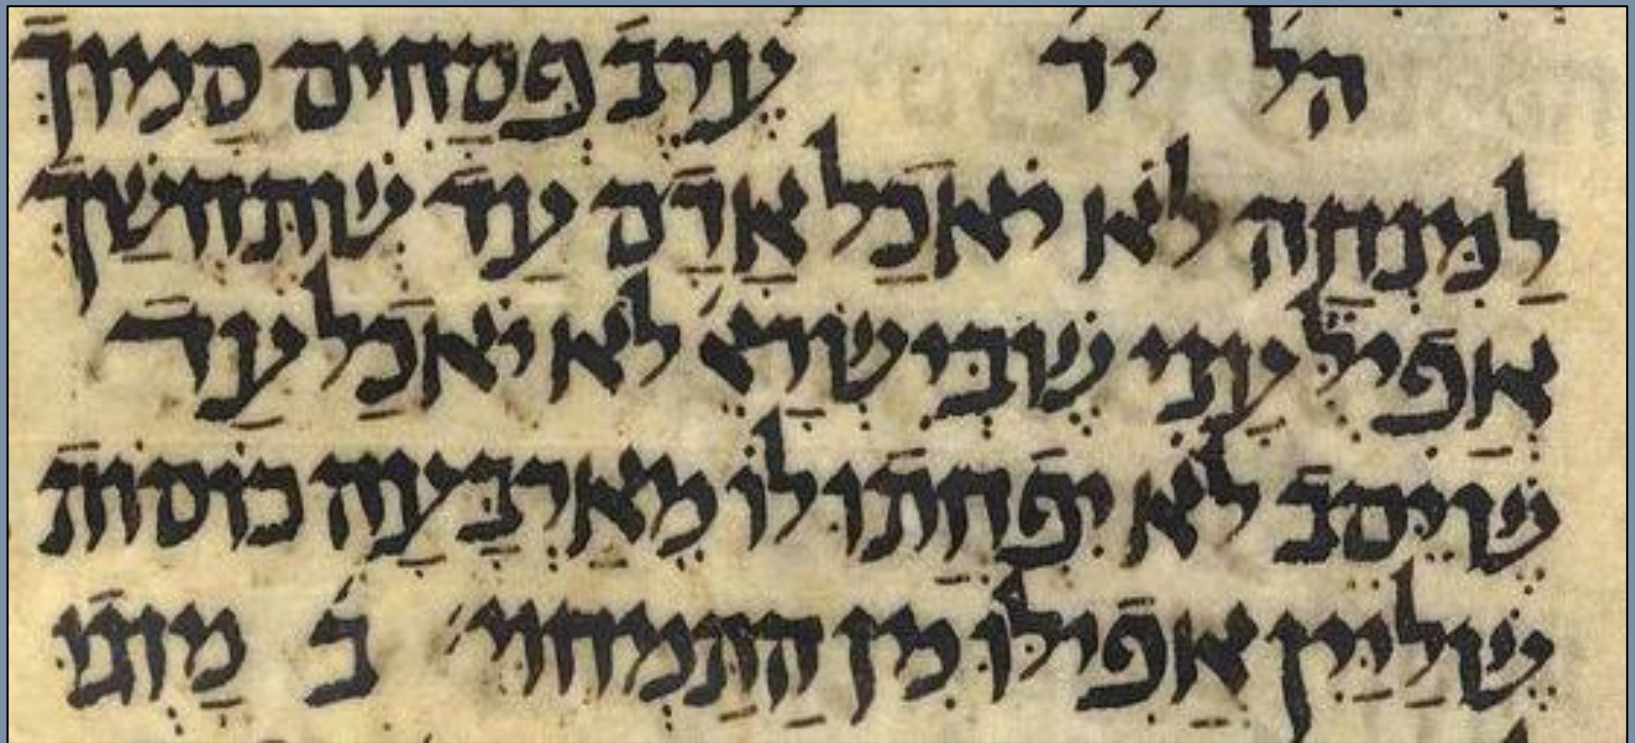 הל יד ערב פסחים סמוך
למנחה לא יאכל אדם עד שתחשך
אפילו עני שבישראל לא יאכל עד
שייסב לא יפחתו לו מארבעה כוסות
שליין אפילו מן התמחוי ב מזגו